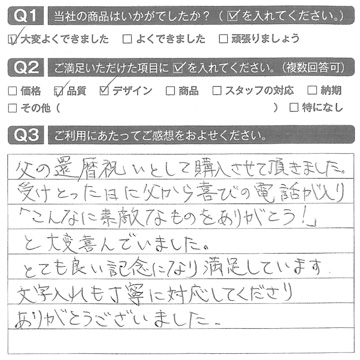 Q1 当社の商品はいかがでしたか？（☑を入れてください。）
☑大変よくできました □よくできました □頑張りましょう
Q2 ご満足いただけた項目に☑を入れてください。（複数回答可）
□価格 ☑品質 ☑デザイン □商品 □スタッフの対応 □納期
□その他（ ） □特になし
Q3 ご利用にあたってご感想をおよせください。
父の還暦祝いとして購入させて頂きました。
受けとった日に父から喜びの電話が入り
「こんなに素敵なものをありがとう!」
と大変喜んでいました。
とても良い記念になり満足しています
文字入れも丁寧に対応してくださり
ありがとうございました.